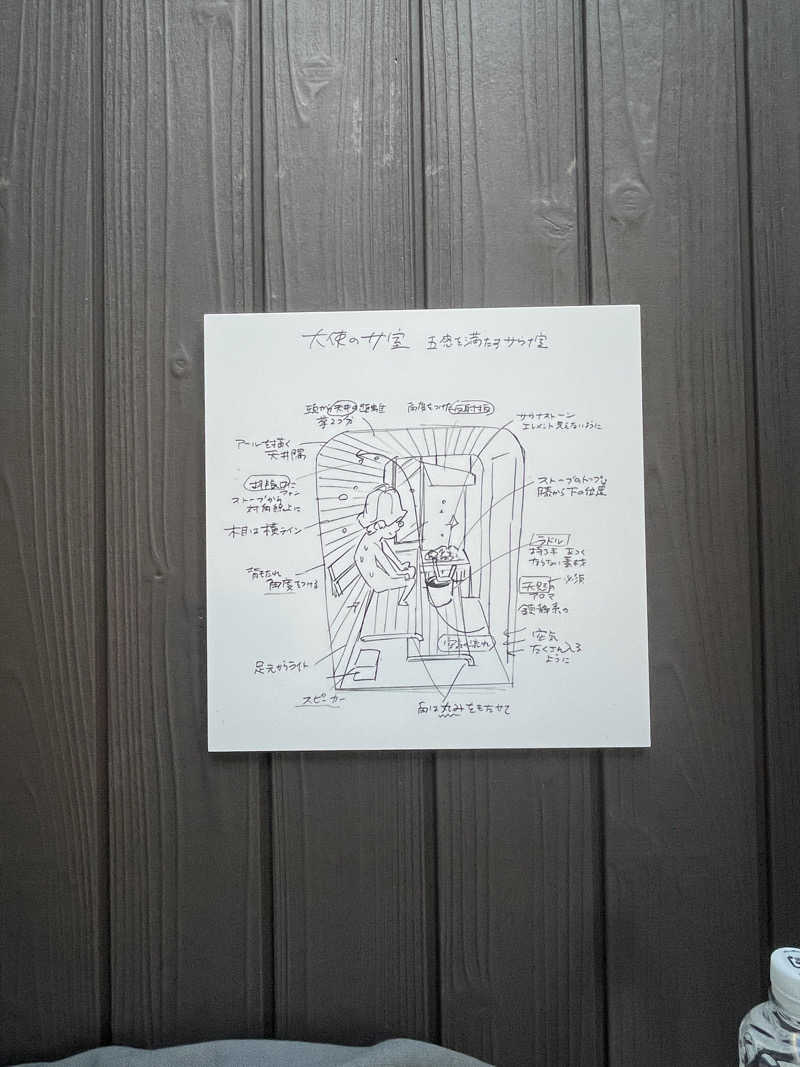 天使のサ室 五感を満たすサウナ室
頭から天井の距離
拳2つ分
角度をつけた反射板
サウナストーン
エレメント見えないように
アールを描く
天井隅
ファン
ストーブから
対角線上に
ストーブのトップは
膝から下の位置
木目は横ライン
ラドル
持つ手 あつく
ならない素材
背もたれ
角度をつける
天然の
必須
アロマ
鎮静系の
空気
たくさん入る
ように
足元からライト
スピーカー
角は丸みをもたせて